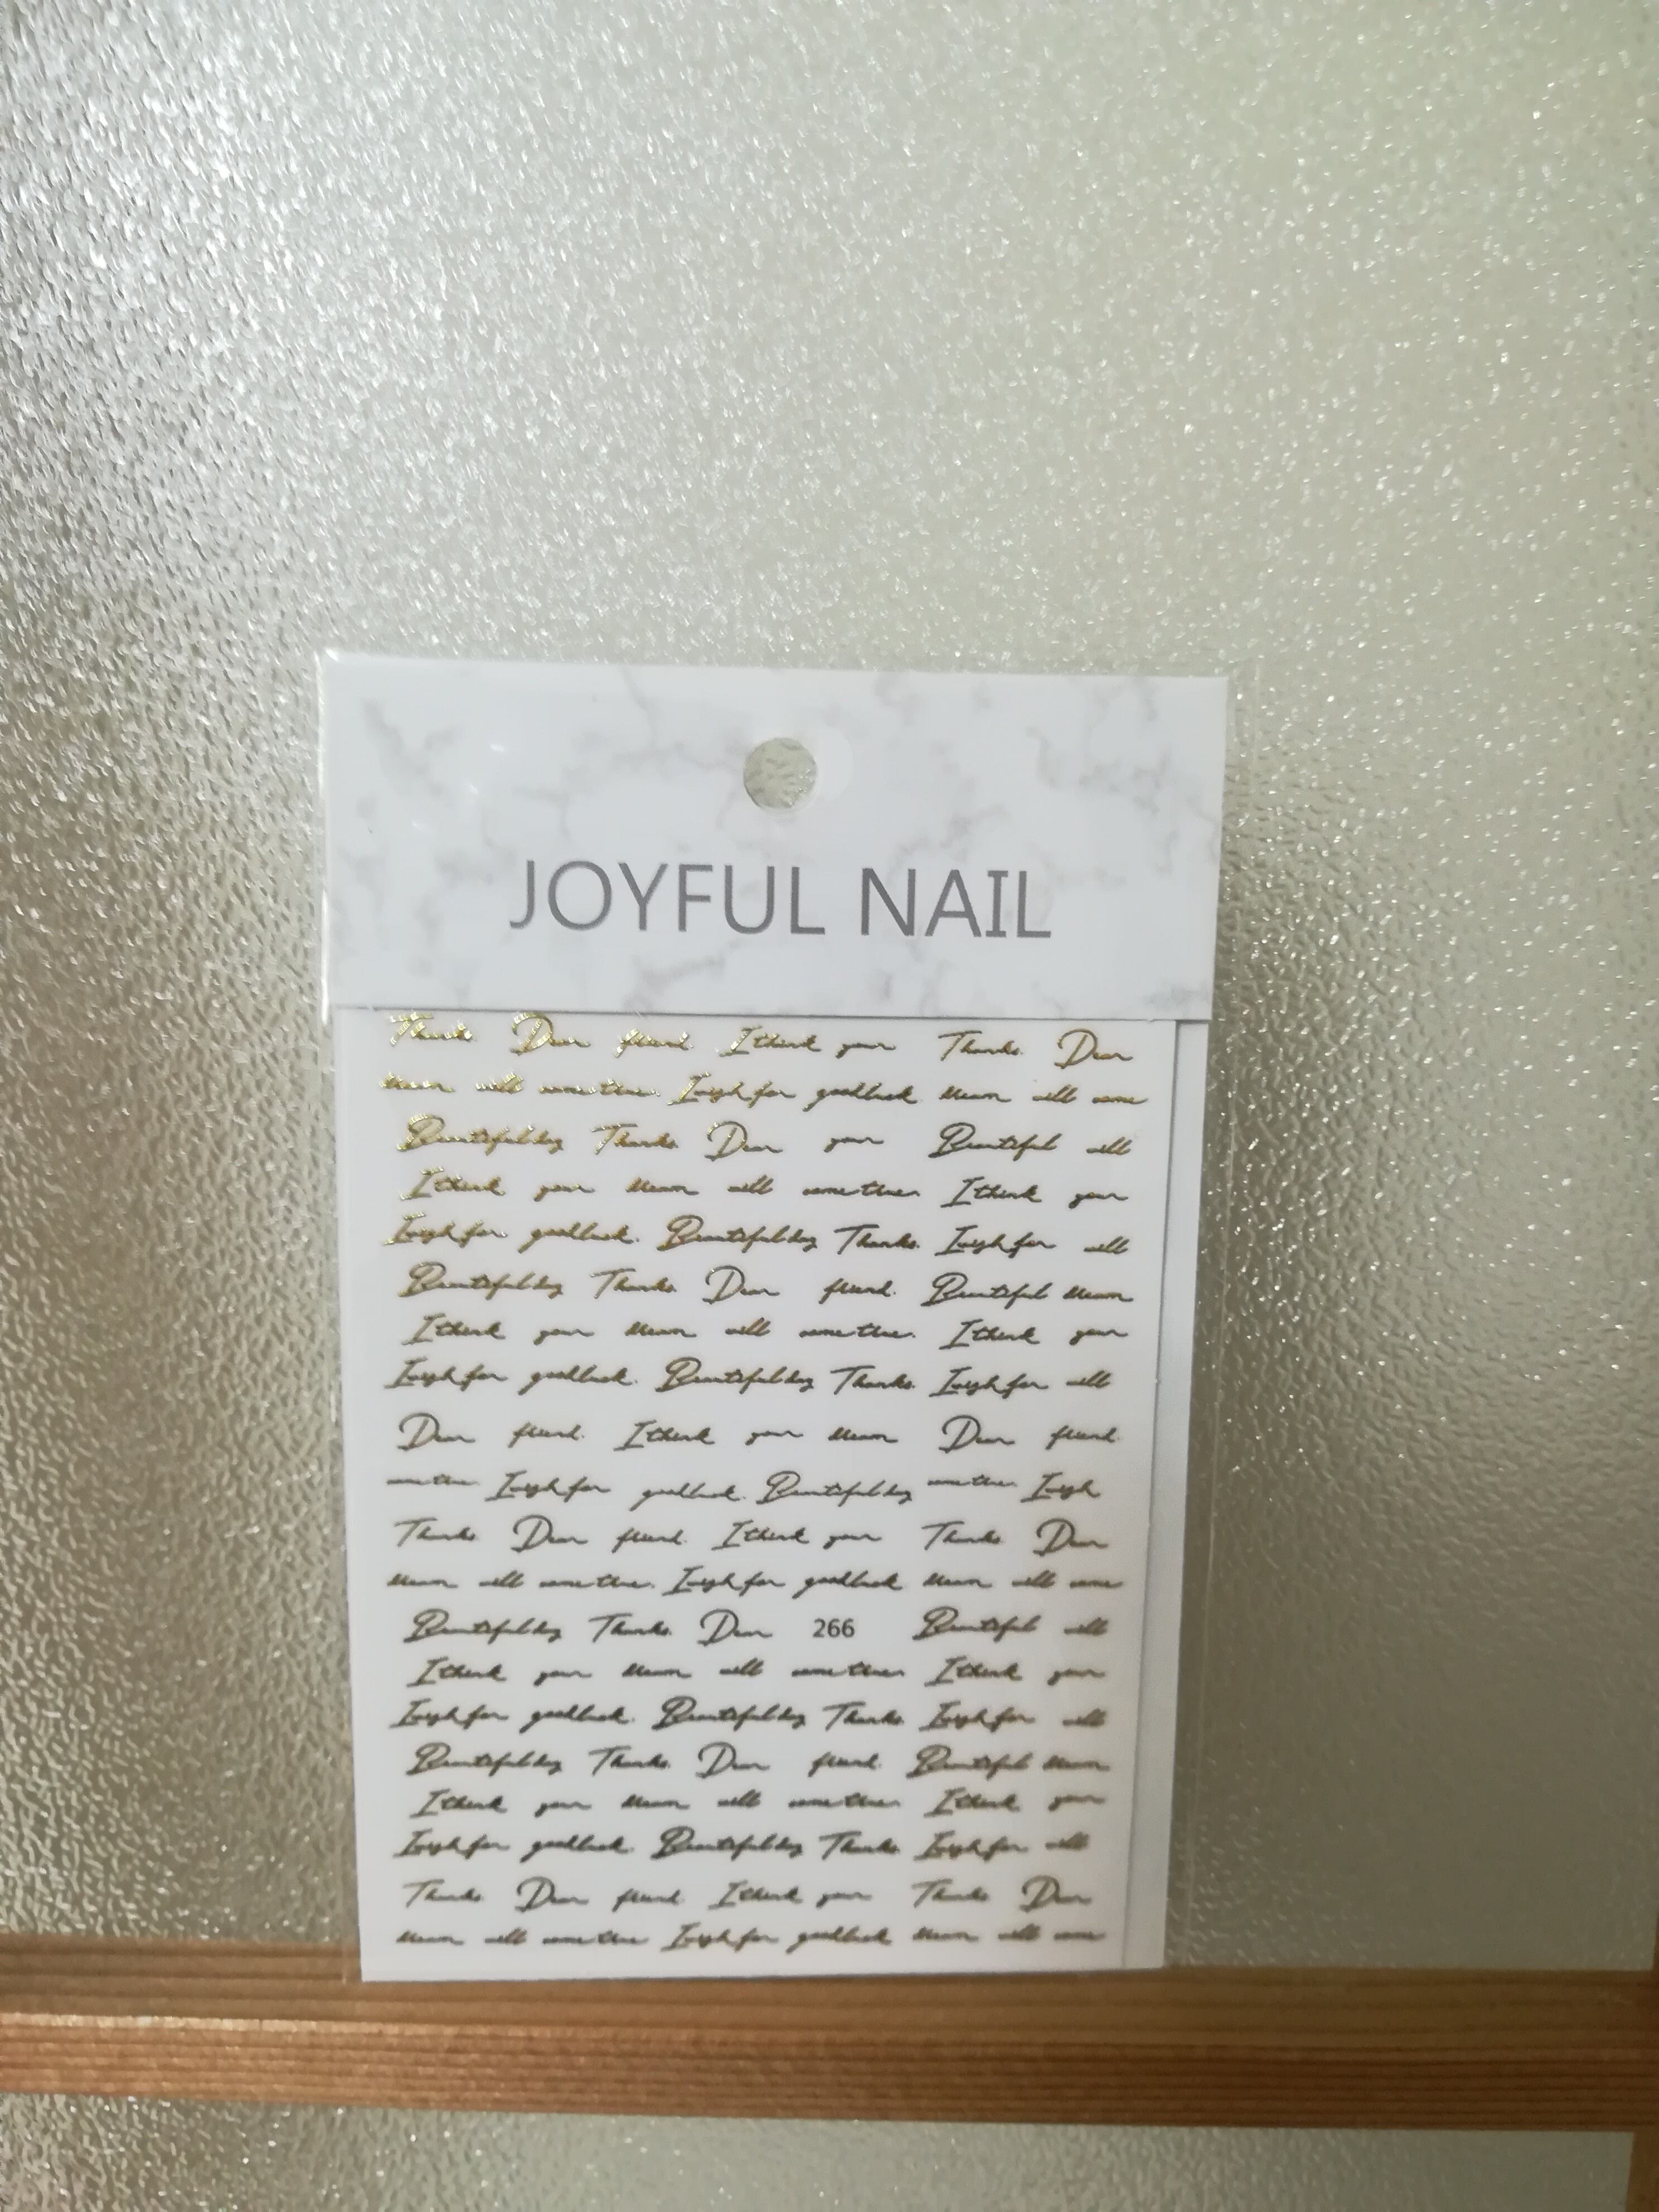 JOYFUL NAIL
Thanks. Dear friend. I think your Thanks. Dear
Mean will come true. I wish for good luck Mean will come
Beautiful day Thanks. Dear your Beautiful will
I think your Mean will come true. I think your
I wish for good luck. Beautiful day Thanks. I wish for will
Beautiful day Thanks. Dear friend. Beautiful Mean
I think your Mean will come true. I think your
I wish for good luck. Beautiful day Thanks. I wish for will
Dear friend. I think your Mean Dear friend.
come true I wish for good luck. Beautiful day come true I wish
Thanks Dear friend. I think your Thanks Dear
Mean will come true. I wish for good luck Mean will come
Beautiful day Thanks. Dear 266 Beautiful will
I think your Mean will come true I think your
I wish for good luck. Beautiful day Thanks I wish for will
Beautiful day Thanks. Dear friend. Beautiful Mean
I think your Mean will come true I think your
I wish for good luck. Beautiful day Thanks I wish for will
Thanks Dear friend I think your Thanks Dear
Mean will come true I wish for good luck Mean will come